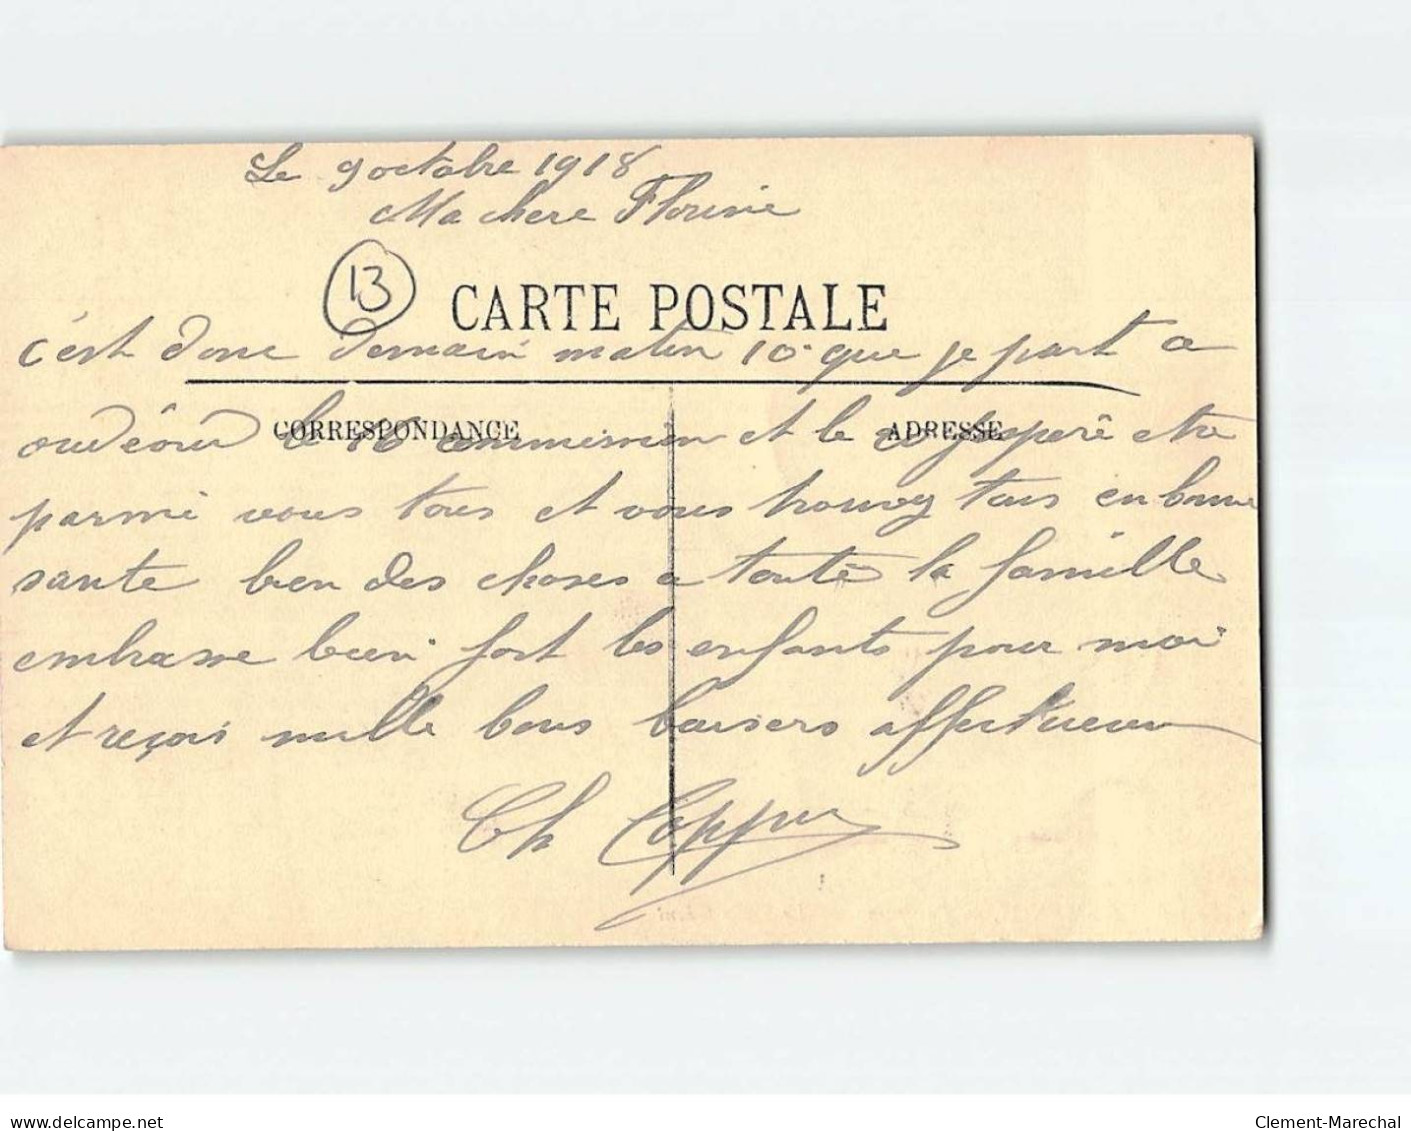 Le 9 octobre 1918
Ma chere Florine
13
CARTE POSTALE
c'est donc demain matin 10 que je part a
CORRESPONDANCE
ADRESSE
le 16 commission et le 20 j'espere etre
parmi vous tous et vous trouvez tous en bonne
sante bien des choses a toute la famille
embrasse bien fort les enfants pour moi
et reçois mille bons baisers affectueux
Ch
delcampe.net
Clement-Marechal